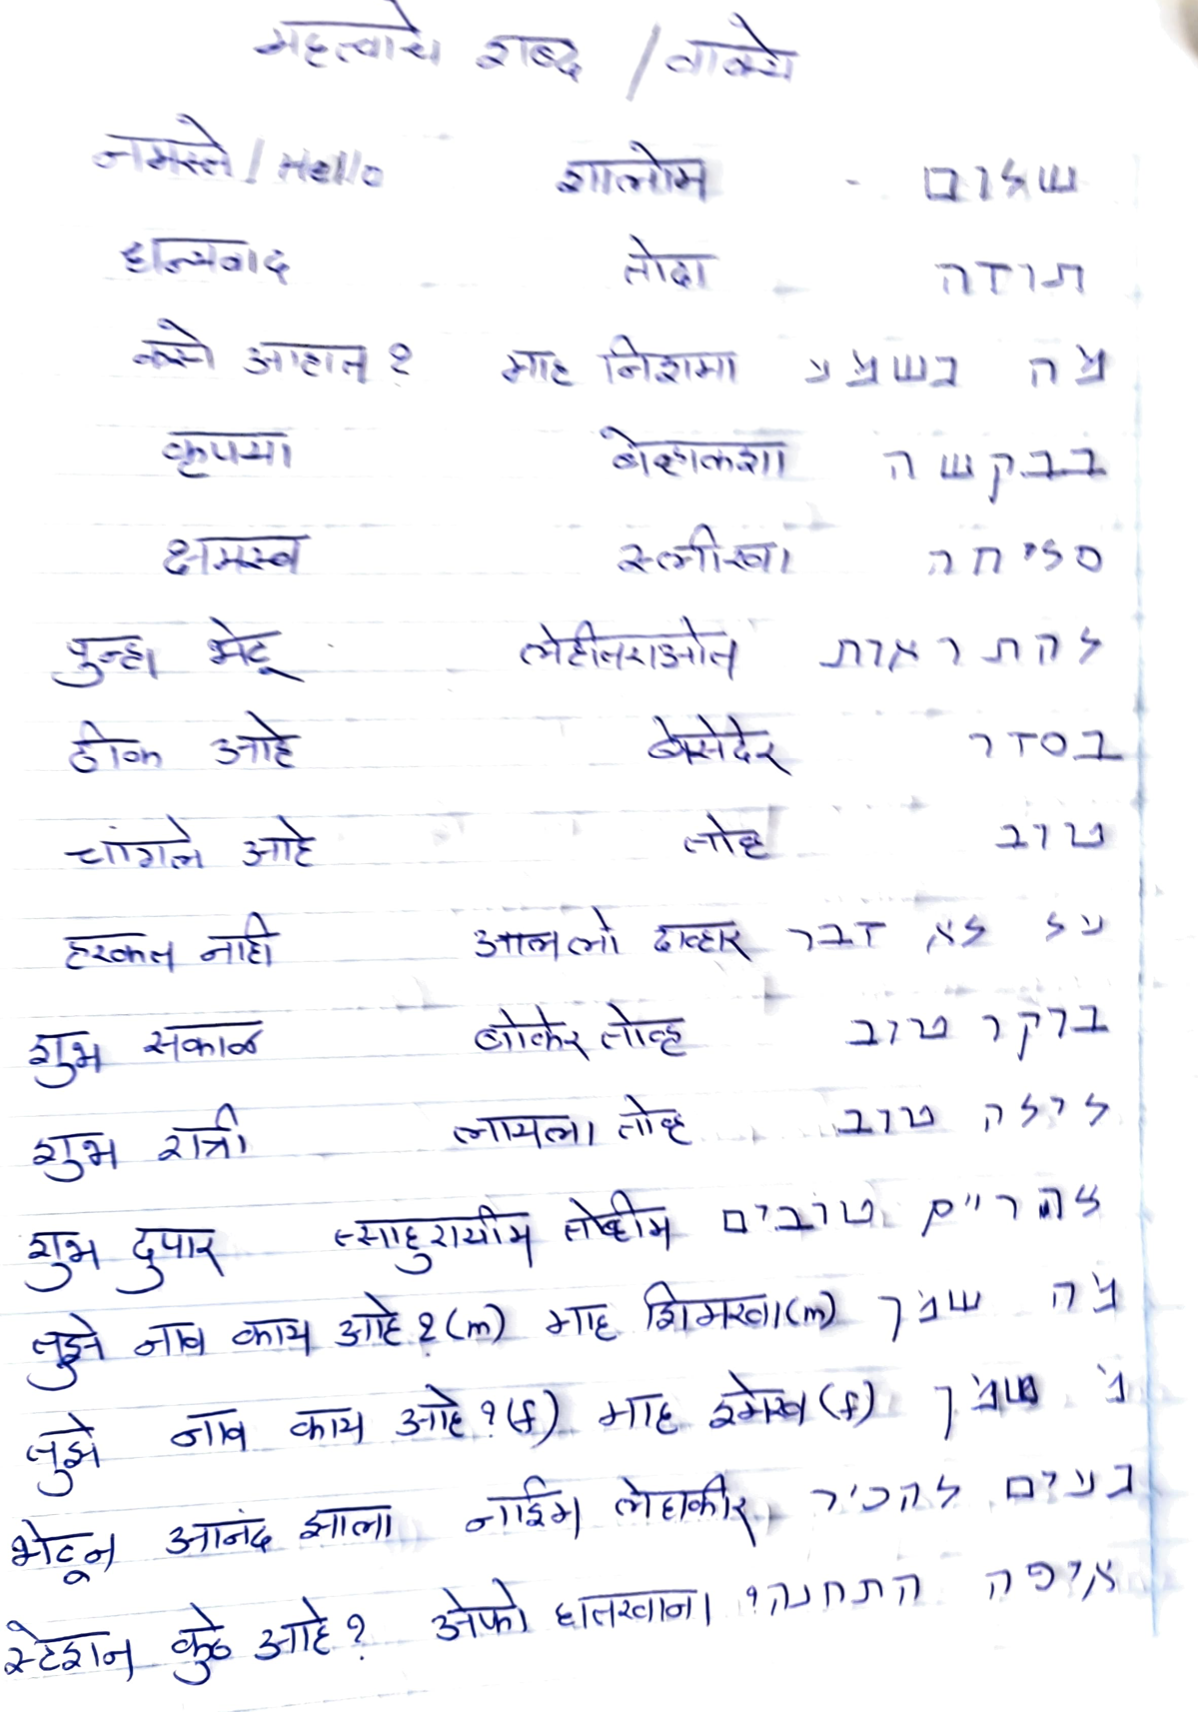 महत्वाचे शब्द / वाक्ये
नमस्ते / Hello शालोम - שלום
धन्यवाद तोदा תודה
कसे आहात? माह निशमा מה נשמע
कृपया बेव्हाकशा בבקשה
क्षमस्व स्लीखा סליחה
पुन्हा भेटू लेहीतराओत להתראות
ठीक आहे बेसेदेर בסדר
चांगले आहे तोव्ह טוב
हरकत नाही आल लो दाव्हार על לא דבר
शुभ सकाळ बोकेर तोव्ह בוקר טוב
शुभ रात्री लायला तोव्ह לילה טוב
शुभ दुपार त्साहुरायीम तोव्हीम צהריים טובים
तुझे नाव काय आहे? (m) माह शिमखा (m) מה שמך
तुझे नाव काय आहे? (f) माह श्मेख (f) מ שמך
भेटून आनंद झाला नाईम लेहाकीर נעים להכיר
स्टेशन कुठे आहे? ॲफो हातखाना איפה התחנה?